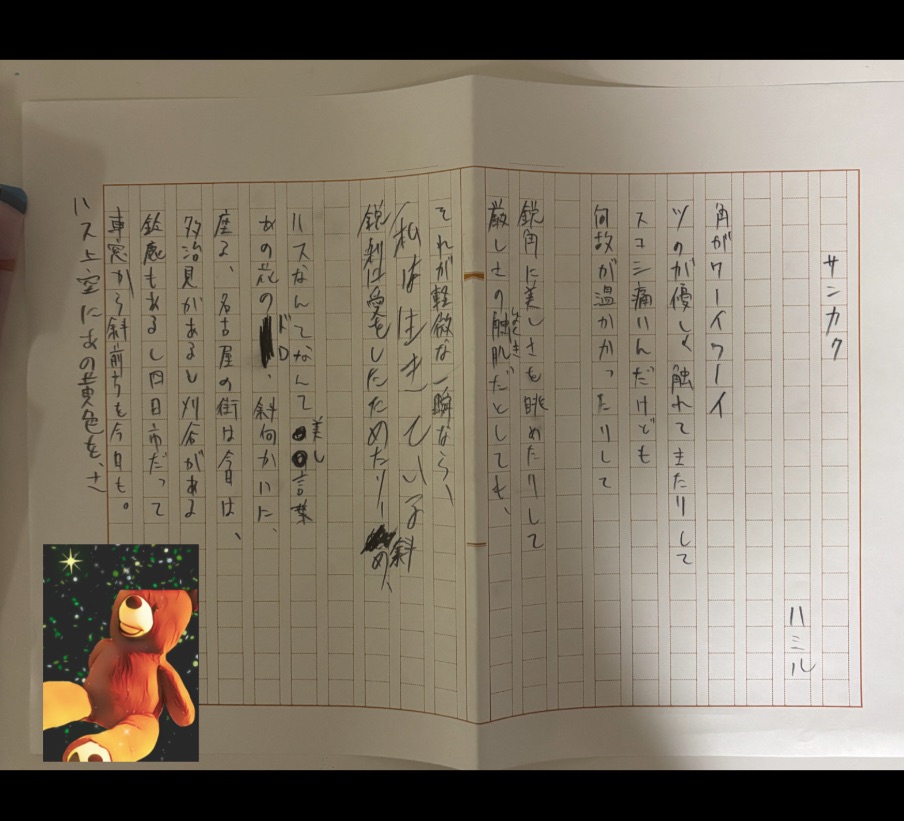 サンカク
ハミル
角がワーイワーイ
ツのが優しく触れてきたりして
スコシ痛いんだけども
何故か温かかったりして
鋭角に美しさを眺めたりして
厳しさの触肌だとしても、
それが軽微な一瞬なら、
私は生きている斜
鋭利は愛をしたためたり め、
ハスなんてなんて美し言葉
あの花の ド 、斜向かいに、
座る、名古屋の街は今日は、
多治見があるし刈谷がある
鈴鹿もあるし四日市だって
車窓から斜前ちも今日も。
ハス上空にあの黄色を、さ